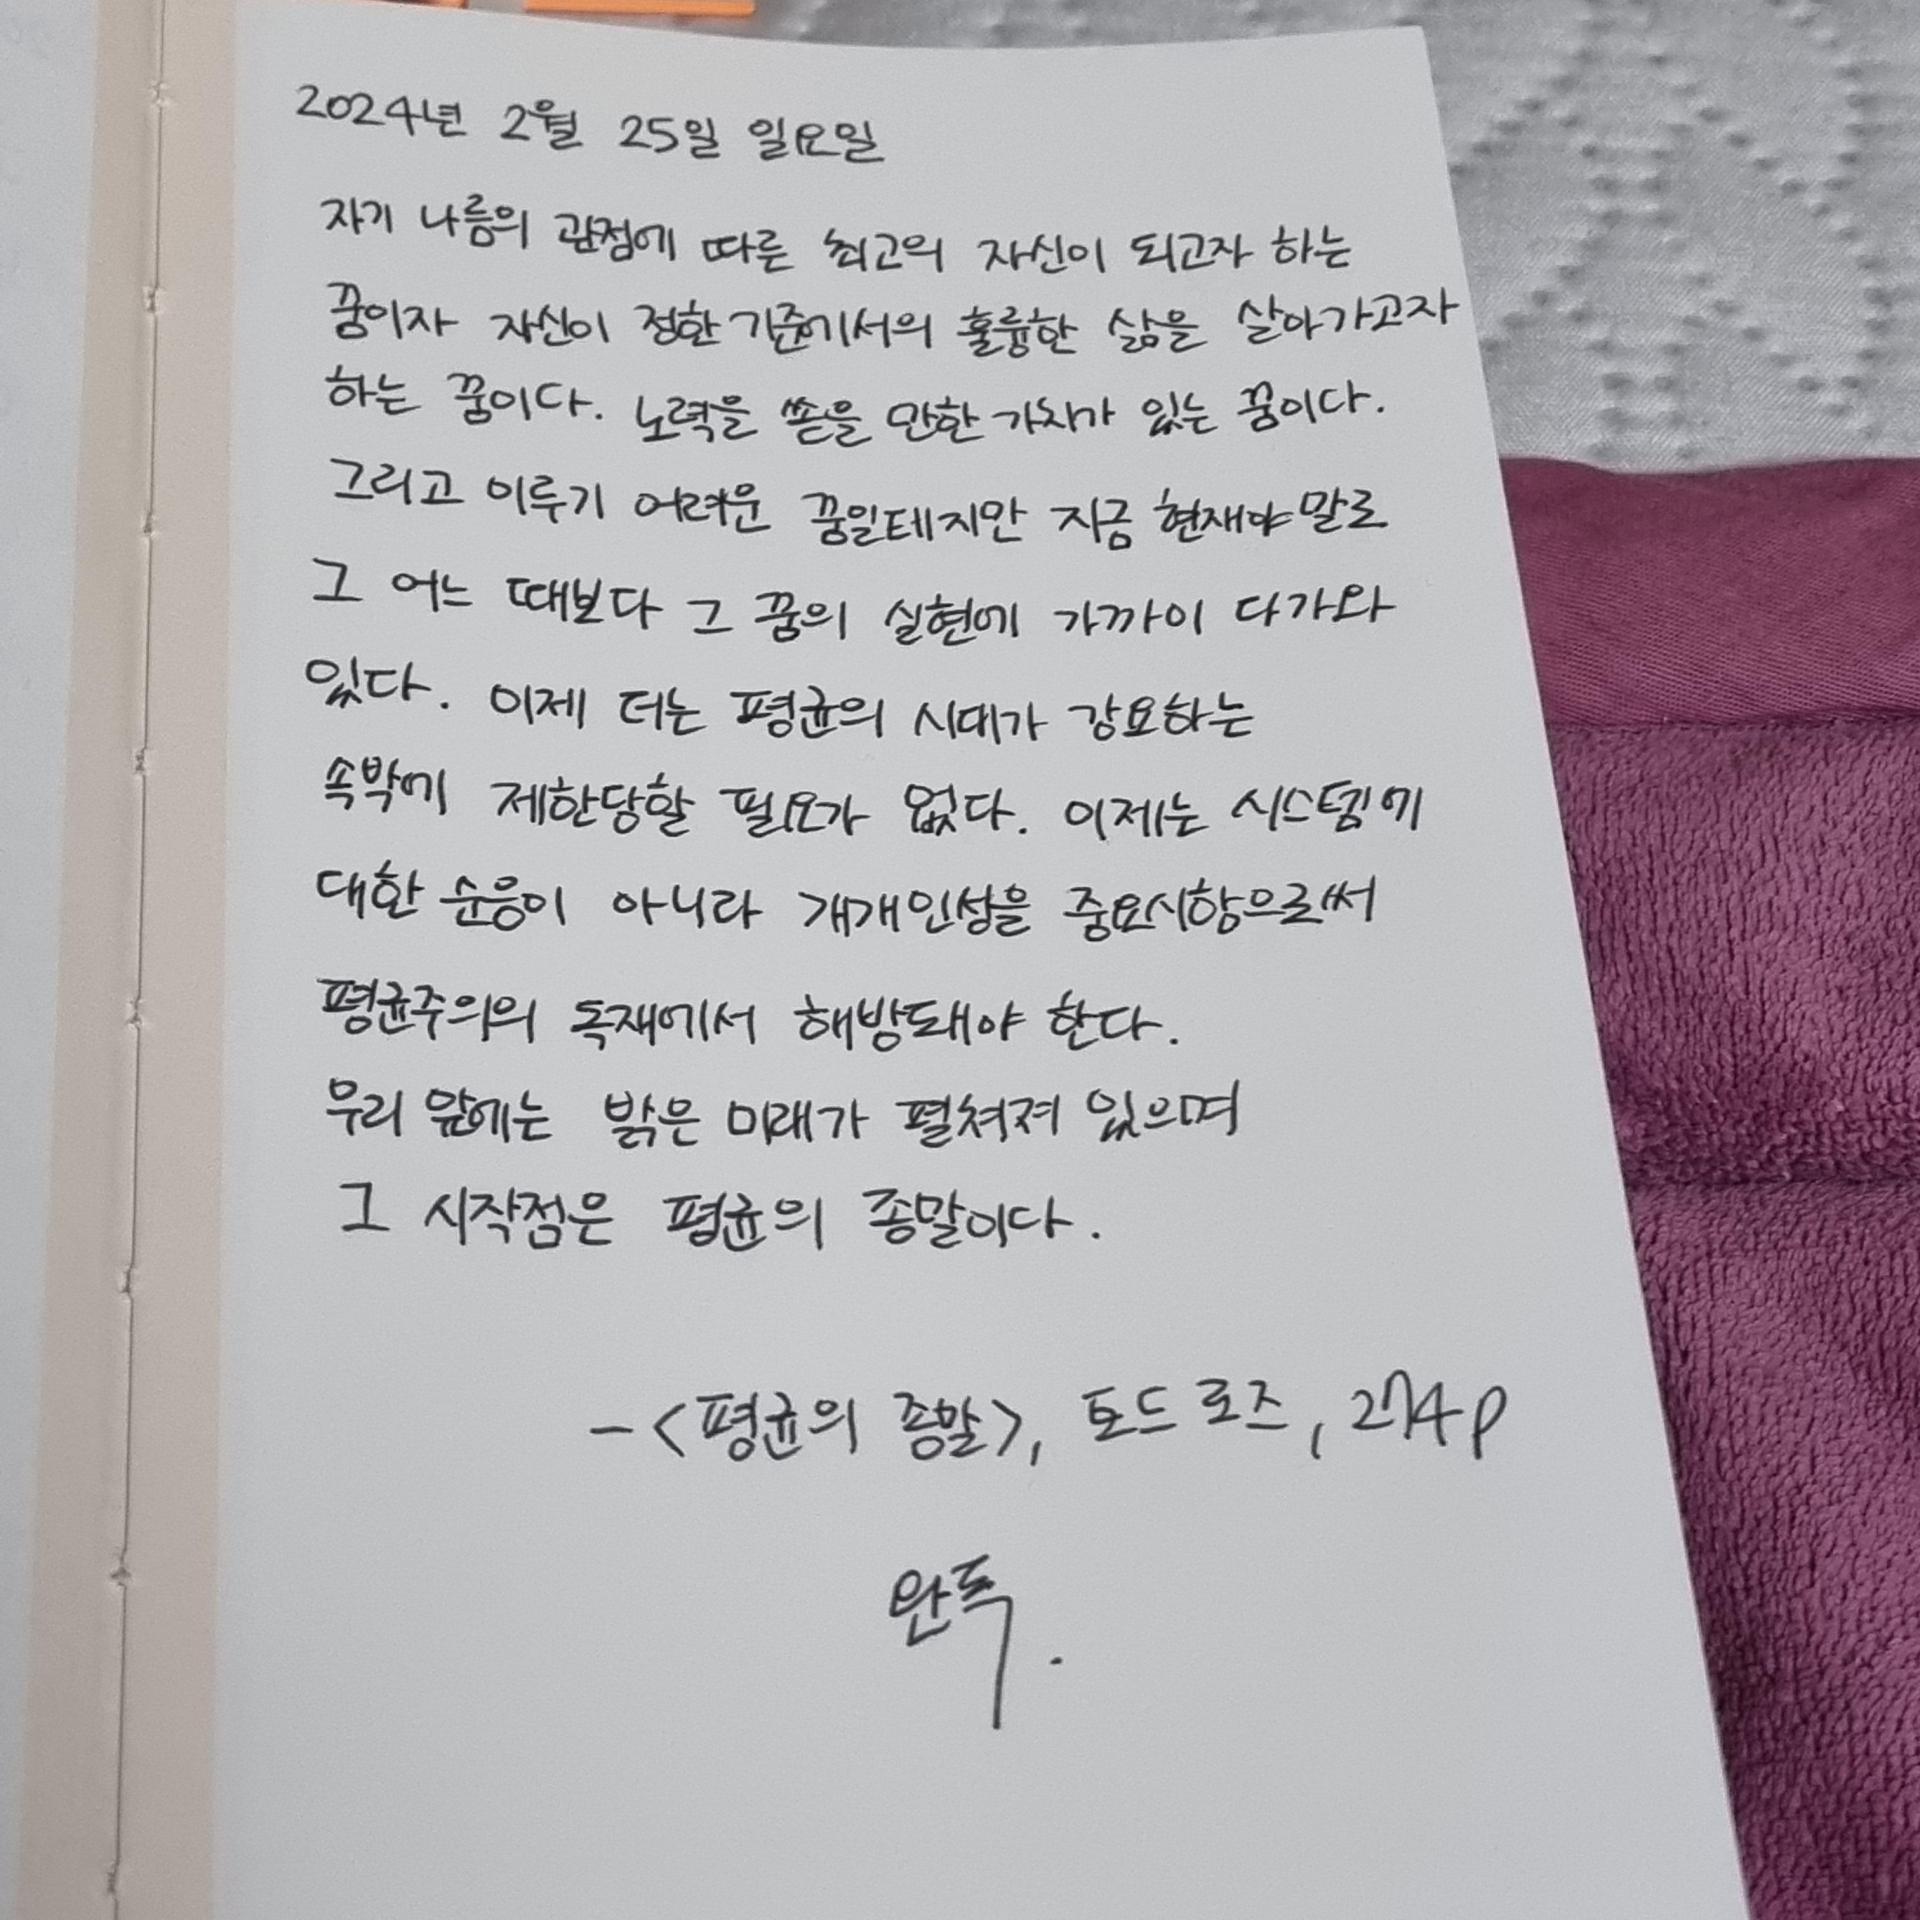 2024년 2월 25일 일요일
자기 나름의 관점에 따른 최고의 자신이 되고자 하는
꿈이자 자신이 정한 기준에서의 훌륭한 삶을 살아가고자
하는 꿈이다. 노력을 쏟을 만한 가치가 있는 꿈이다.
그리고 이루기 어려운 꿈일테지만 지금 현재야말로
그 어느 때보다 그 꿈의 실현에 가까이 다가와
있다. 이제 더는 평균의 시대가 강요하는
속박에 제한당할 필요가 없다. 이제는 시스템에
대한 순응이 아니라 개개인성을 중요시함으로써
평균주의의 독재에서 해방돼야 한다.
우리 앞에는 밝은 미래가 펼쳐져 있으며
그 시작점은 평균의 종말이다.
-<평균의 종말>, 토드 로즈, 274p
완독.